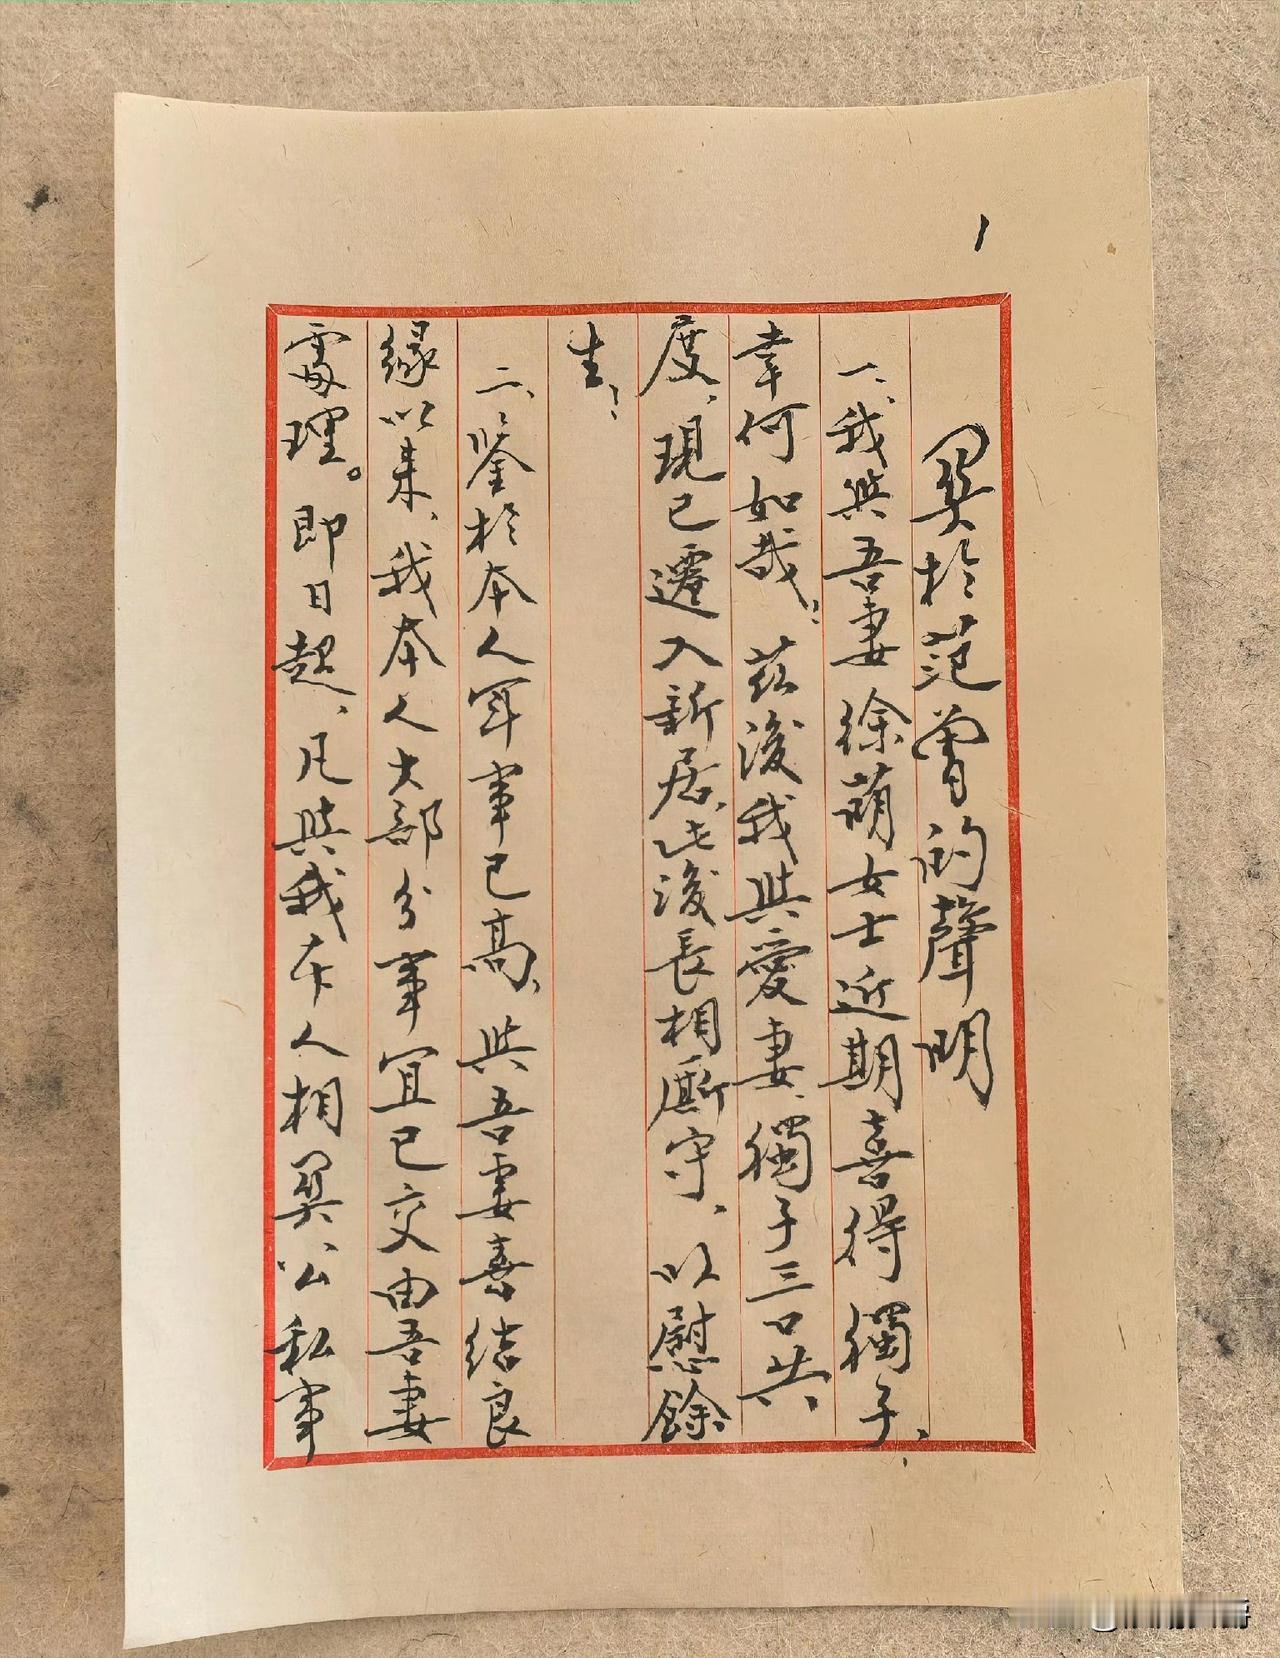 1
関於范曾的聲明
一、我與吾妻徐萌女士近期喜得獨子、
幸何如哉！茲後我與愛妻、獨子三口共
度、現已遷入新居、此後長相廝守、以慰餘
生！
二、鑒於本人年事已高、與吾妻喜結良
緣以來、我本人大部分事宜已交由吾妻
處理。即日起、凡與我本人相関、公私事